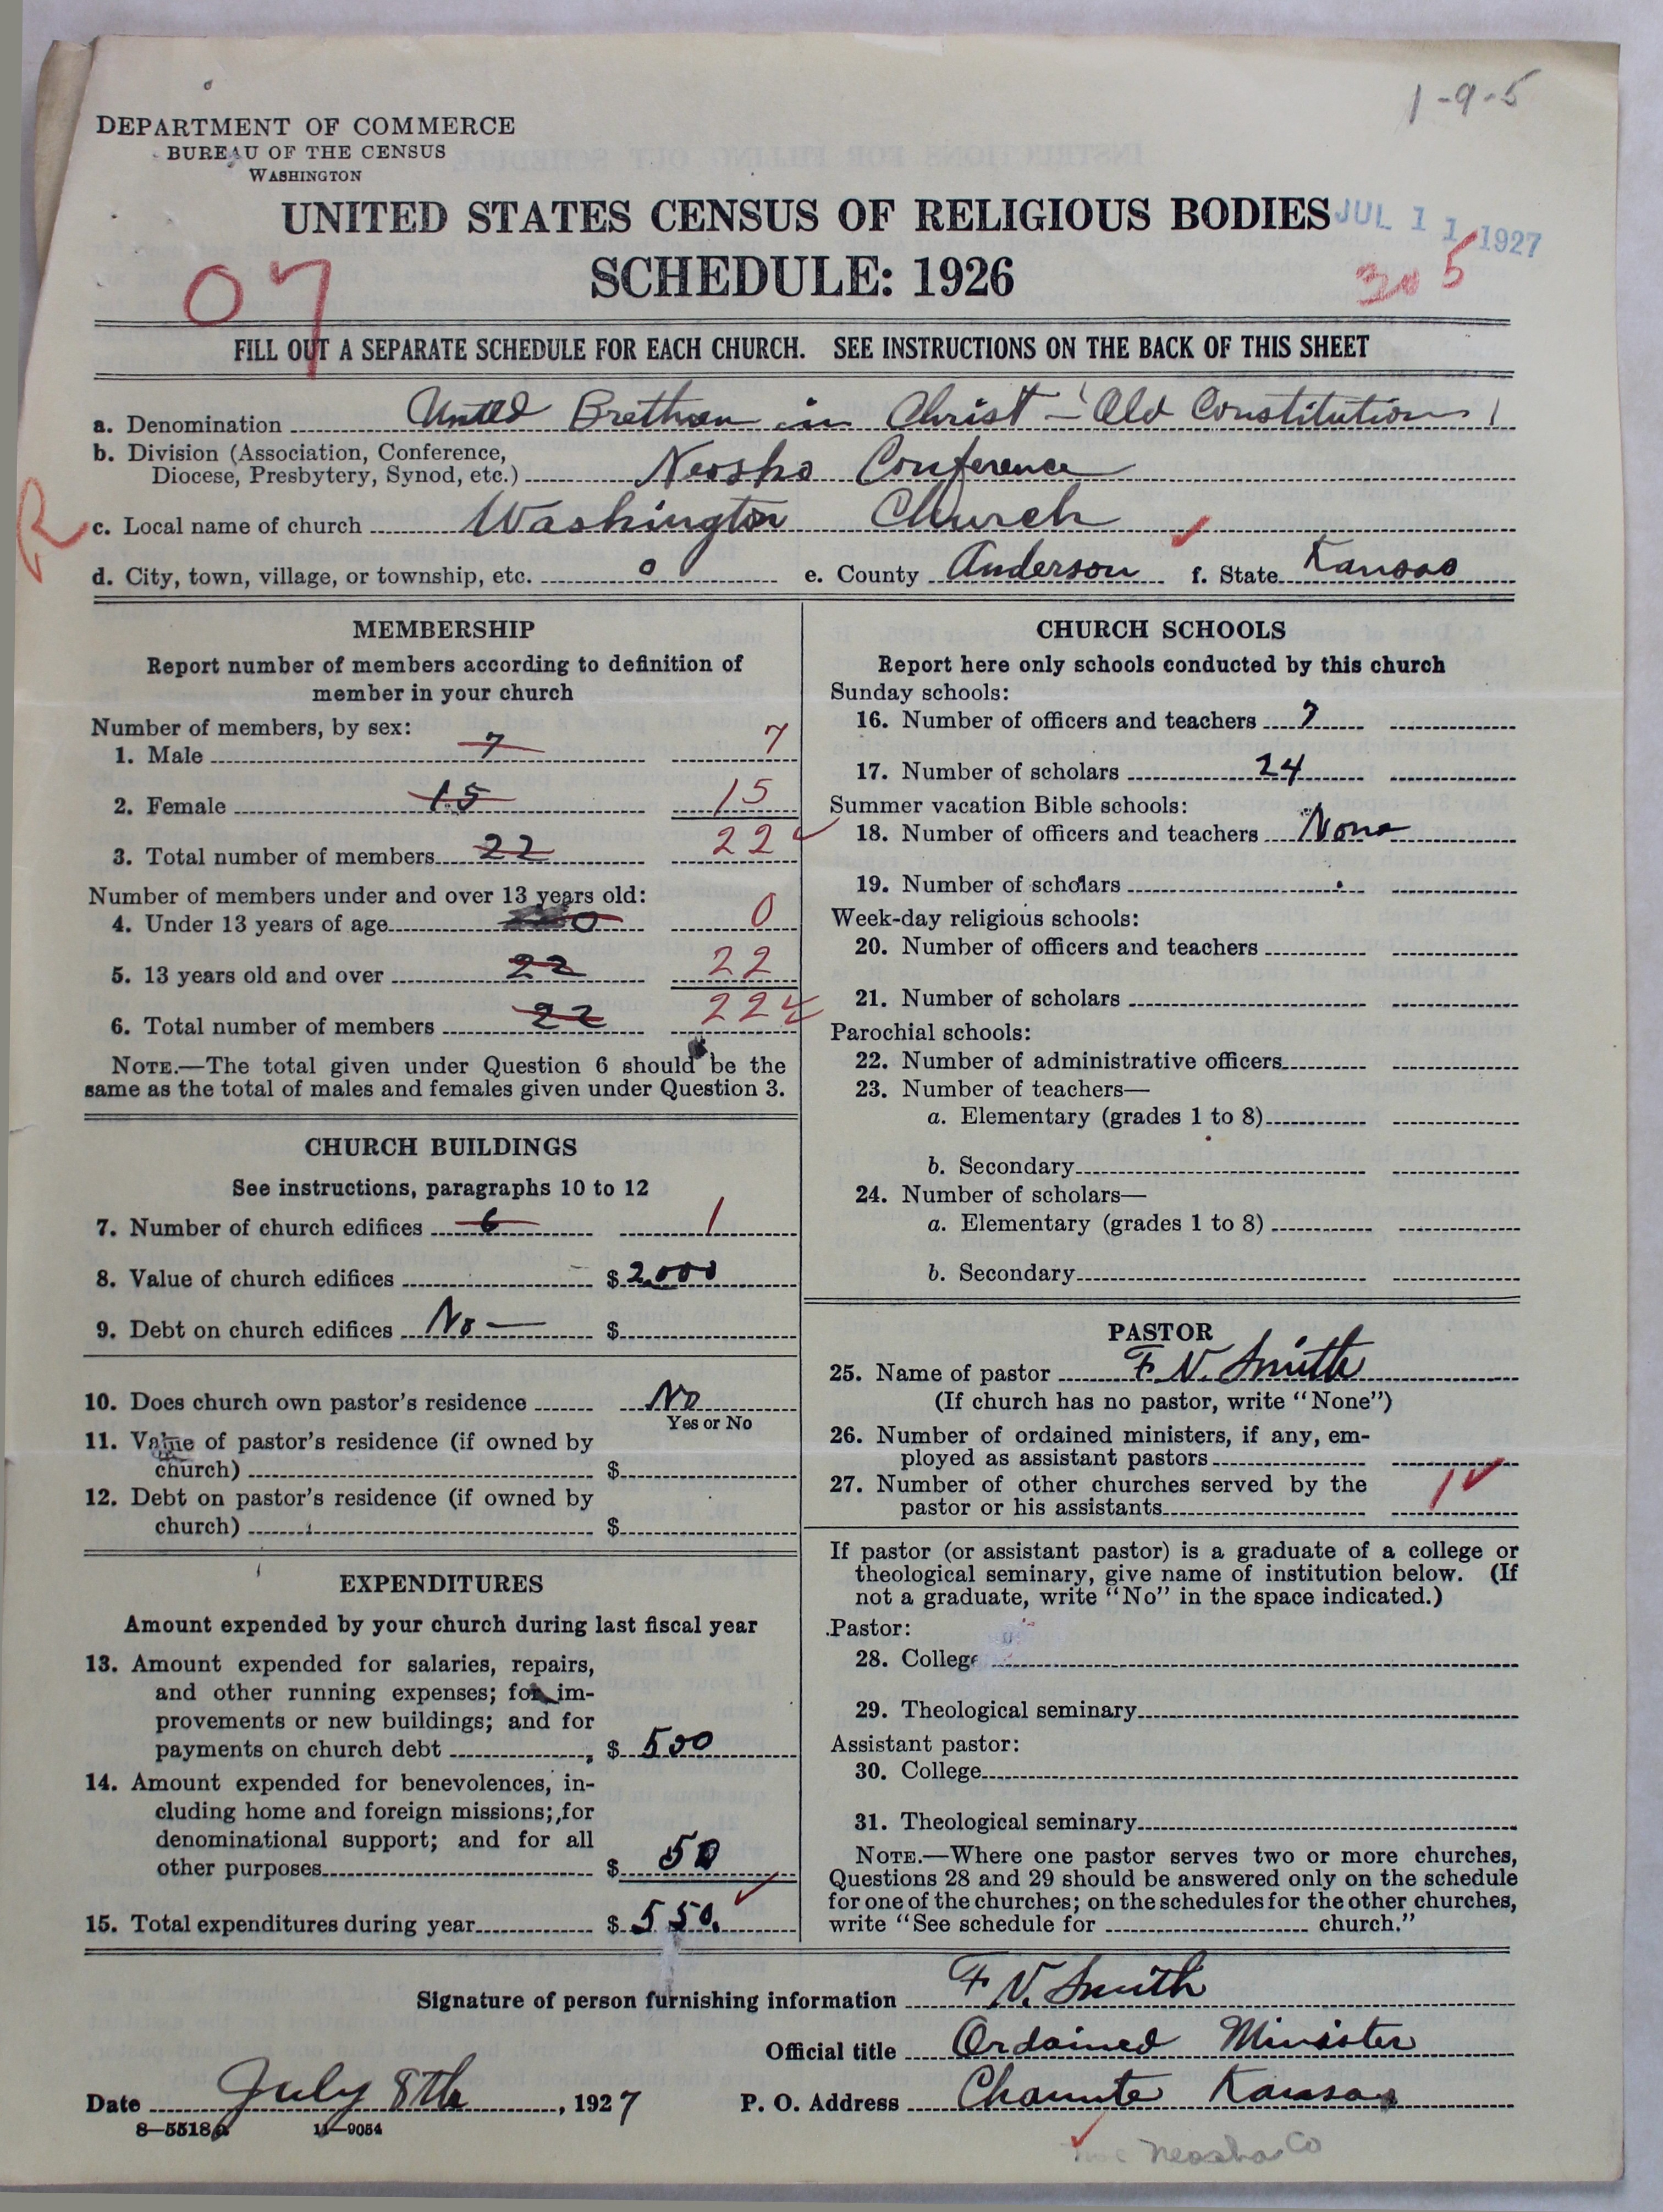 1-9-5
DEPARTMENT OF COMMERCE
BUREAU OF THE CENSUS
WASHINGTON
UNITED STATES CENSUS OF RELIGIOUS BODIES
JUL 11 1927
SCHEDULE: 1926
07
305
FILL OUT A SEPARATE SCHEDULE FOR EACH CHURCH. SEE INSTRUCTIONS ON THE BACK OF THIS SHEET
a. Denomination United Brethren in Christ - "Old Constitution"
b. Division (Association, Conference,
Diocese, Presbytery, Synod, etc.) Neosho Conference
R
c. Local name of church Washington Church
d. City, town, village, or township, etc. 0 e. County Anderson f. State Kansas
MEMBERSHIP
Report number of members according to definition of
member in your church
Number of members, by sex:
1. Male 7 7
2. Female 15 15
3. Total number of members 22 22
Number of members under and over 13 years old:
4. Under 13 years of age 0 0
5. 13 years old and over 22 22
6. Total number of members 22 22
NOTE.—The total given under Question 6 should be the
same as the total of males and females given under Question 3.
CHURCH BUILDINGS
See instructions, paragraphs 10 to 12
7. Number of church edifices 6 1
8. Value of church edifices $ 2,000
9. Debt on church edifices No — $
10. Does church own pastor's residence No
Yes or No
11. Value of pastor's residence (if owned by
church) $
12. Debt on pastor's residence (if owned by
church) $
EXPENDITURES
Amount expended by your church during last fiscal year
13. Amount expended for salaries, repairs,
and other running expenses; for im-
provements or new buildings; and for
payments on church debt $ 500
14. Amount expended for benevolences, in-
cluding home and foreign missions; for
denominational support; and for all
other purposes $ 50
15. Total expenditures during year $ 550.
CHURCH SCHOOLS
Report here only schools conducted by this church
Sunday schools:
16. Number of officers and teachers 7
17. Number of scholars 24
Summer vacation Bible schools:
18. Number of officers and teachers None
19. Number of scholars
Week-day religious schools:
20. Number of officers and teachers
21. Number of scholars
Parochial schools:
22. Number of administrative officers
23. Number of teachers—
a. Elementary (grades 1 to 8)
b. Secondary
24. Number of scholars—
a. Elementary (grades 1 to 8)
b. Secondary
PASTOR
25. Name of pastor F. N. Smith
(If church has no pastor, write "None")
26. Number of ordained ministers, if any, em-
ployed as assistant pastors
27. Number of other churches served by the
pastor or his assistants 1
If pastor (or assistant pastor) is a graduate of a college or
theological seminary, give name of institution below. (If
not a graduate, write "No" in the space indicated.)
Pastor:
28. College
29. Theological seminary
Assistant pastor:
30. College
31. Theological seminary
NOTE.—Where one pastor serves two or more churches,
Questions 28 and 29 should be answered only on the schedule
for one of the churches; on the schedules for the other churches,
write "See schedule for church."
Signature of person furnishing information F. N. Smith
Official title Ordained Minister
Date July 8th, 1927 P. O. Address Chanute Kansas
8—5518a 11—9054
Neosho Co